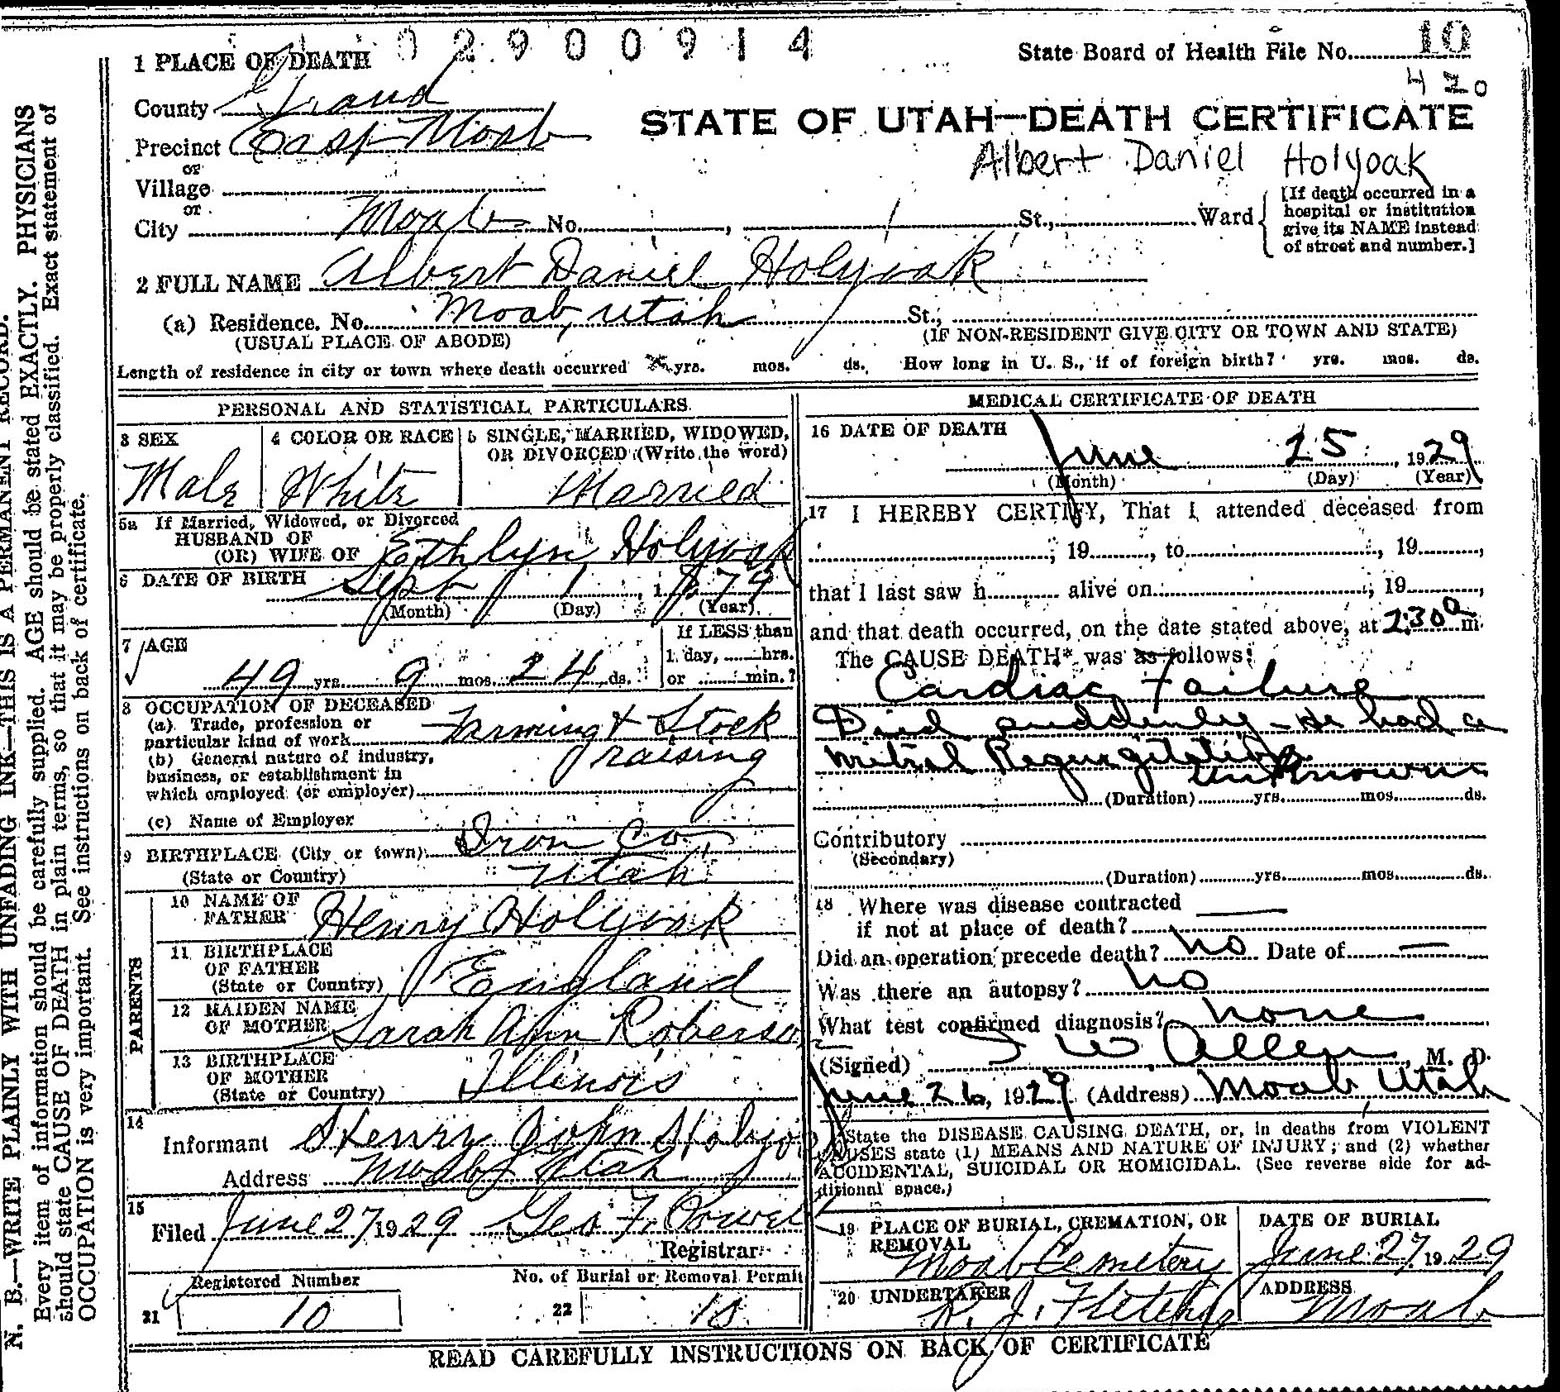 02900914
State Board of Health File No. 10
420
1 PLACE OF DEATH
County Grand
STATE OF UTAH—DEATH CERTIFICATE
Precinct East Moab
Albert Daniel Holyoak
or
Village
or
City Moab No. , St., Ward
[If death occurred in a
hospital or institution
give its NAME instead
of street and number.]
2 FULL NAME Albert Daniel Holyoak
(a) Residence. No. Moab, Utah St.,
(USUAL PLACE OF ABODE) (IF NON-RESIDENT GIVE CITY OR TOWN AND STATE)
Length of residence in city or town where death occurred yrs. mos. ds. How long in U. S., if of foreign birth? yrs. mos. ds.
PERSONAL AND STATISTICAL PARTICULARS
3 SEX
Male
4 COLOR OR RACE
White
5 SINGLE, MARRIED, WIDOWED,
OR DIVORCED (Write the word)
Married
5a If Married, Widowed, or Divorced
HUSBAND OF
(OR) WIFE OF Eathlyn Holyoak
6 DATE OF BIRTH Sept 1, 1879
(Month) (Day) (Year)
7 AGE
49 yrs. 9 mos. 24 ds.
If LESS than
1 day, hrs.
or min.?
8 OCCUPATION OF DECEASED
(a) Trade, profession or
particular kind of work Farming & Stock
raising
(b) General nature of industry,
business, or establishment in
which employed (or employer)
(c) Name of Employer
9 BIRTHPLACE (City or town) Iron Co,
(State or Country) Utah
PARENTS
10 NAME OF
FATHER Henry Holyoak
11 BIRTHPLACE
OF FATHER
(State or Country) England
12 MAIDEN NAME
OF MOTHER Sarah Ann Roberso
13 BIRTHPLACE
OF MOTHER
(State or Country) Illinois
14
Informant Henry John Holyoa
Address Moab Utah
15
Filed June 27, 1929 Geo F. Powel
Registrar
Registered Number
21 10
No. of Burial or Removal Permit
22 10
MEDICAL CERTIFICATE OF DEATH
16 DATE OF DEATH
June 25, 1929
(Month) (Day) (Year)
17 I HEREBY CERTIFY, That I attended deceased from
; 19 , to , 19 ,
that I last saw h alive on , 19 ,
and that death occurred, on the date stated above, at 2:30 a m.
The CAUSE DEATH* was as follows:
Cardiac Failure
Died suddenly - He had a
Mitral Regurgitation
unknown
(Duration) yrs. mos. ds.
Contributory
(Secondary)
(Duration) yrs. mos. ds.
18 Where was disease contracted
if not at place of death?
Did an operation precede death? No Date of —
Was there an autopsy? No
What test confirmed diagnosis? None
(Signed) J W Allen, M. D.
June 26, 1929 (Address) Moab Utah
*State the DISEASE CAUSING DEATH, or, in deaths from VIOLENT
CAUSES state (1) MEANS AND NATURE OF INJURY; and (2) whether
ACCIDENTAL, SUICIDAL OR HOMICIDAL. (See reverse side for ad-
ditional space.)
19 PLACE OF BURIAL, CREMATION, OR
REMOVAL
Moab Cemetery
DATE OF BURIAL
June 27, 1929
20 UNDERTAKER
R. J. Fletcher
ADDRESS
Moab
READ CAREFULLY INSTRUCTIONS ON BACK OF CERTIFICATE
N. B.—WRITE PLAINLY WITH UNFADING INK—THIS IS A PERMANENT RECORD.
Every item of information should be carefully supplied. AGE should be stated EXACTLY. PHYSICIANS
should state CAUSE OF DEATH in plain terms, so that it may be properly classified. Exact statement of
OCCUPATION is very important. See instructions on back of certificate.